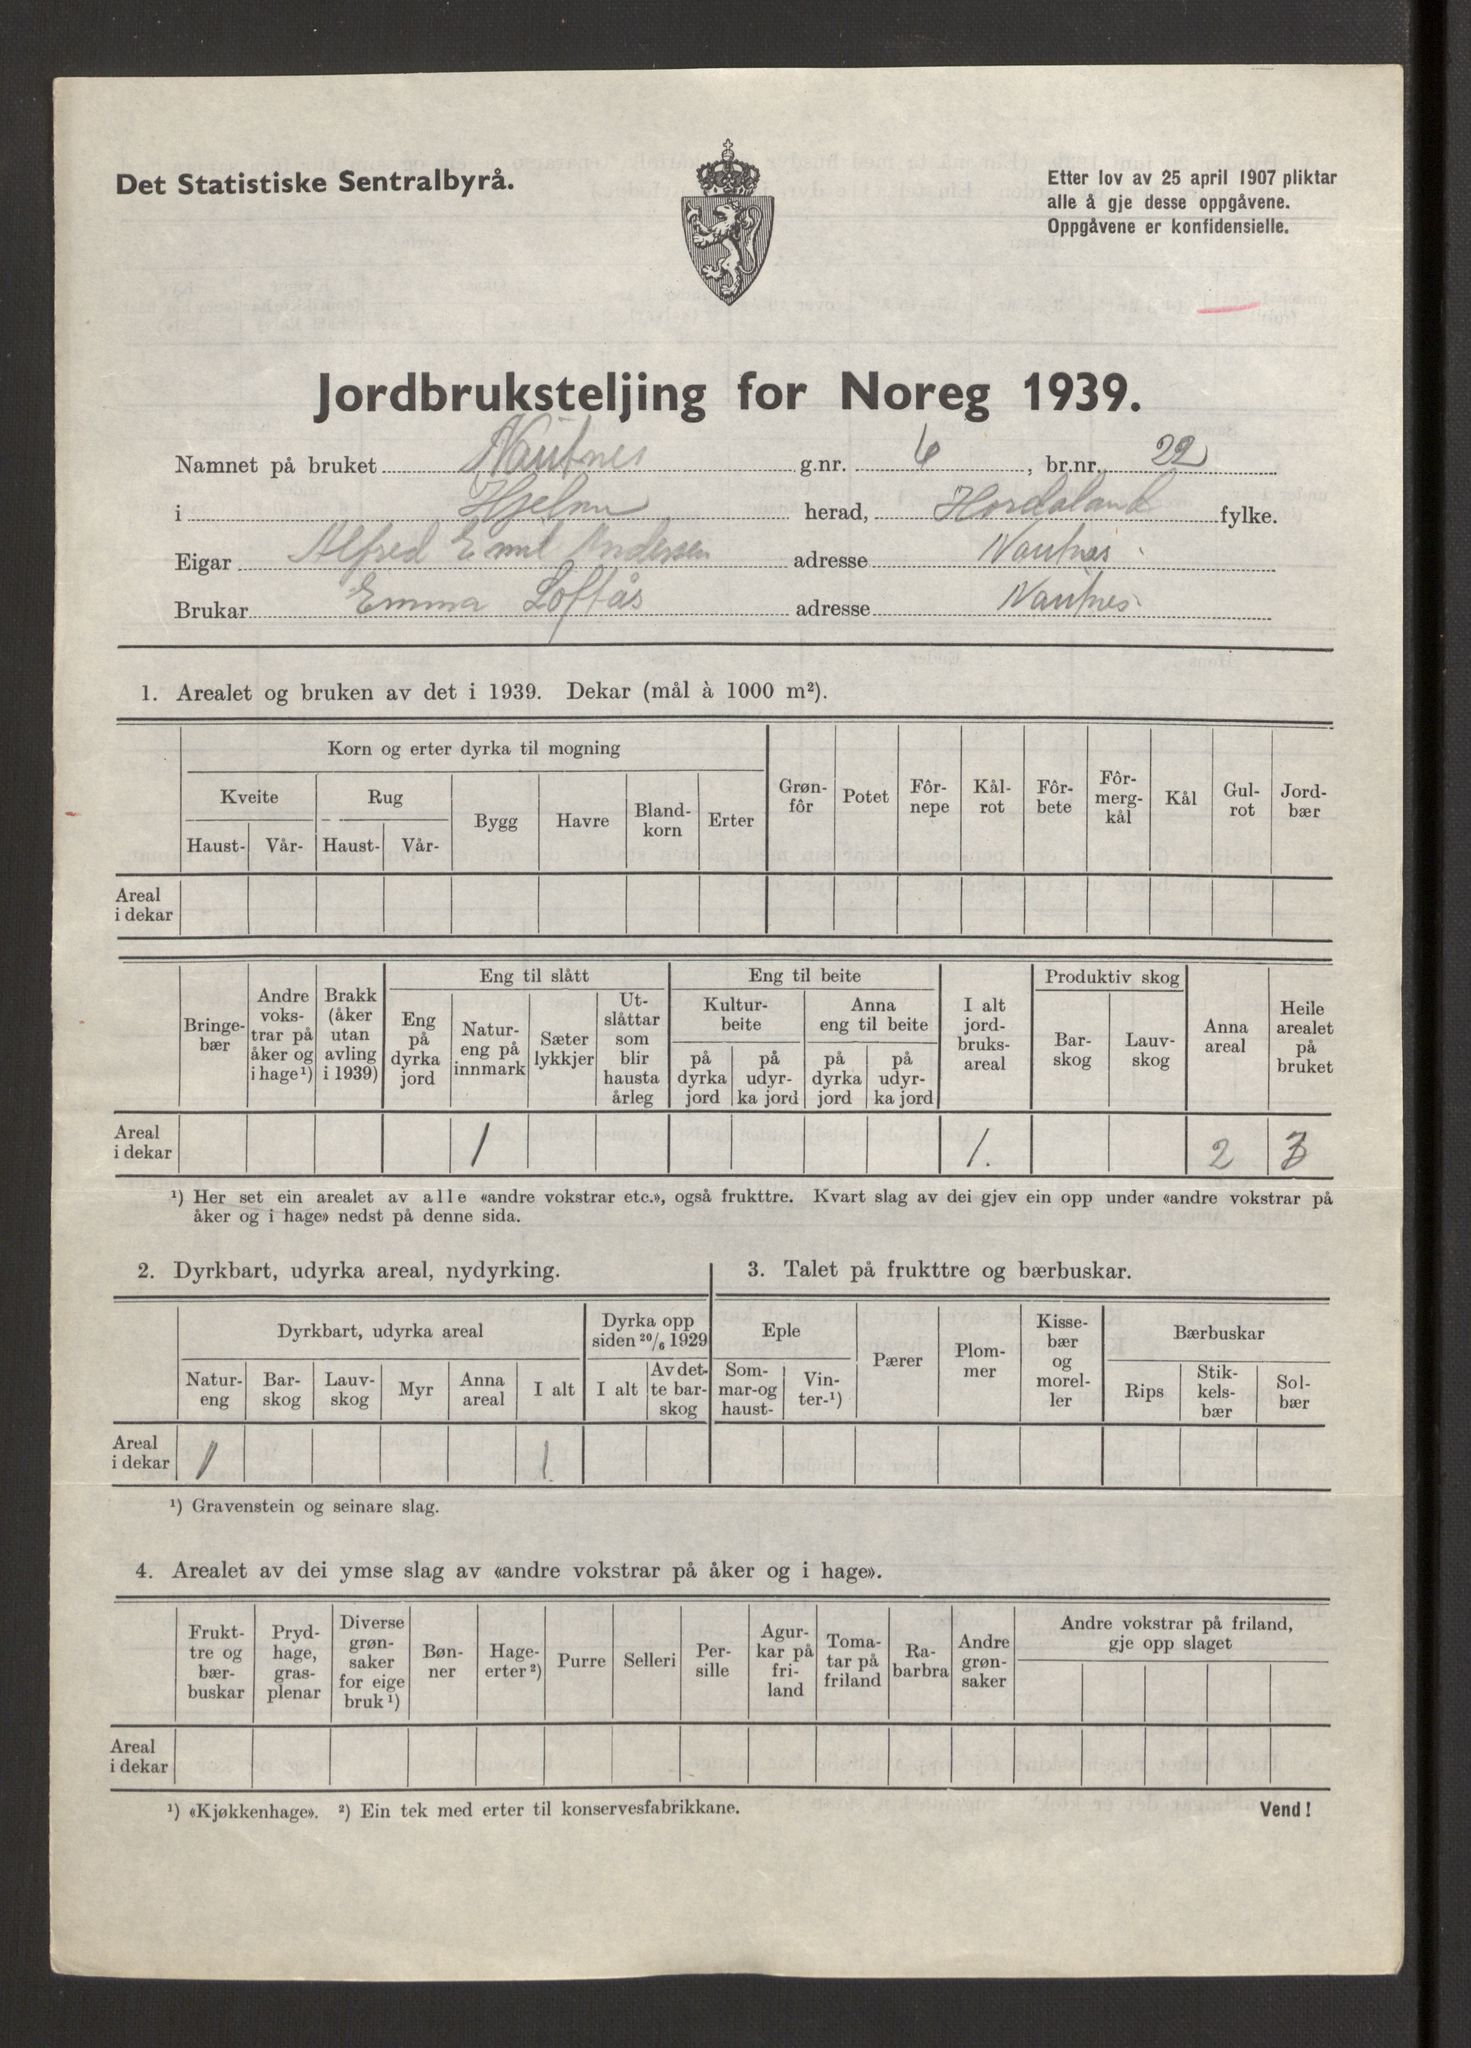 Det Statistiske Sentralbyrå.
Etter lov av 25 april 1907 pliktar
alle å gje desse oppgåvene.
Oppgåvene er konfidensielle.
Jordbruksteljing for Noreg 1939.
Namnet på bruket Nautnes g.nr. 6, br.nr. 22
i Hjelme herad, Hordaland fylke.
Eigar Alfred Emil Andersen adresse Nautnes
Brukar Emma Loftås adresse Nautnes
1. Arealet og bruken av det i 1939. Dekar (mål à 1000 m²).
Korn og erter dyrka til mogning
Kveite Rug
Haust- Vår- Haust- Vår- Bygg Havre Bland-korn Erter Grøn-fôr Potet Fôr-nepe Kål-rot Fôr-bete Fôr-mergkål Kål Gul-rot Jord-bær
Areal
i dekar
Eng til slått Eng til beite Produktiv skog
Kultur-beite Anna eng til beite
Bringe-bær Andre vokstrar på åker og i hage¹) Brakk (åker utan avling i 1939) Eng på dyrka jord Natur-eng på innmark Sæter lykkjer Ut-slåttar som blir hausta årleg på dyrka jord på udyr-ka jord på dyrka jord på udyr-ka jord I alt jord-bruks-areal Bar-skog Lauv-skog Anna areal Heile arealet på bruket
Areal
i dekar 1 1. 2 3
¹) Her set ein arealet av alle «andre vokstrar etc.», også frukttre. Kvart slag av dei gjev ein opp under «andre vokstrar på
åker og i hage» nedst på denne sida.
2. Dyrkbart, udyrka areal, nydyrking.
Dyrkbart, udyrka areal Dyrka opp siden 20/6 1929
Natur-eng Bar-skog Lauv-skog Myr Anna areal I alt I alt Av det-te bar-skog
Areal
i dekar 1 1
3. Talet på frukttre og bærbuskar.
Eple Pærer Plom-mer Kisse-bær og morel-ler Bærbuskar
Som-mar-og haust- Vin-ter-¹) Rips Stik-kels-bær Sol-bær
¹) Gravenstein og seinare slag.
4. Arealet av dei ymse slag av «andre vokstrar på åker og i hage».
Frukt-tre og bær-buskar Pryd-hage, gras-plenar Diverse grøn-saker for eige bruk¹) Bøn-ner Hage-erter²) Purre Selleri Per-sille Agur-kar på fri-land Toma-tar på friland Ra-barbra Andre grøn-saker Andre vokstrar på friland, gje opp slaget
Areal
i dekar
¹) «Kjøkkenhage». ²) Ein tek med erter til konservesfabrikkane.
Vend!